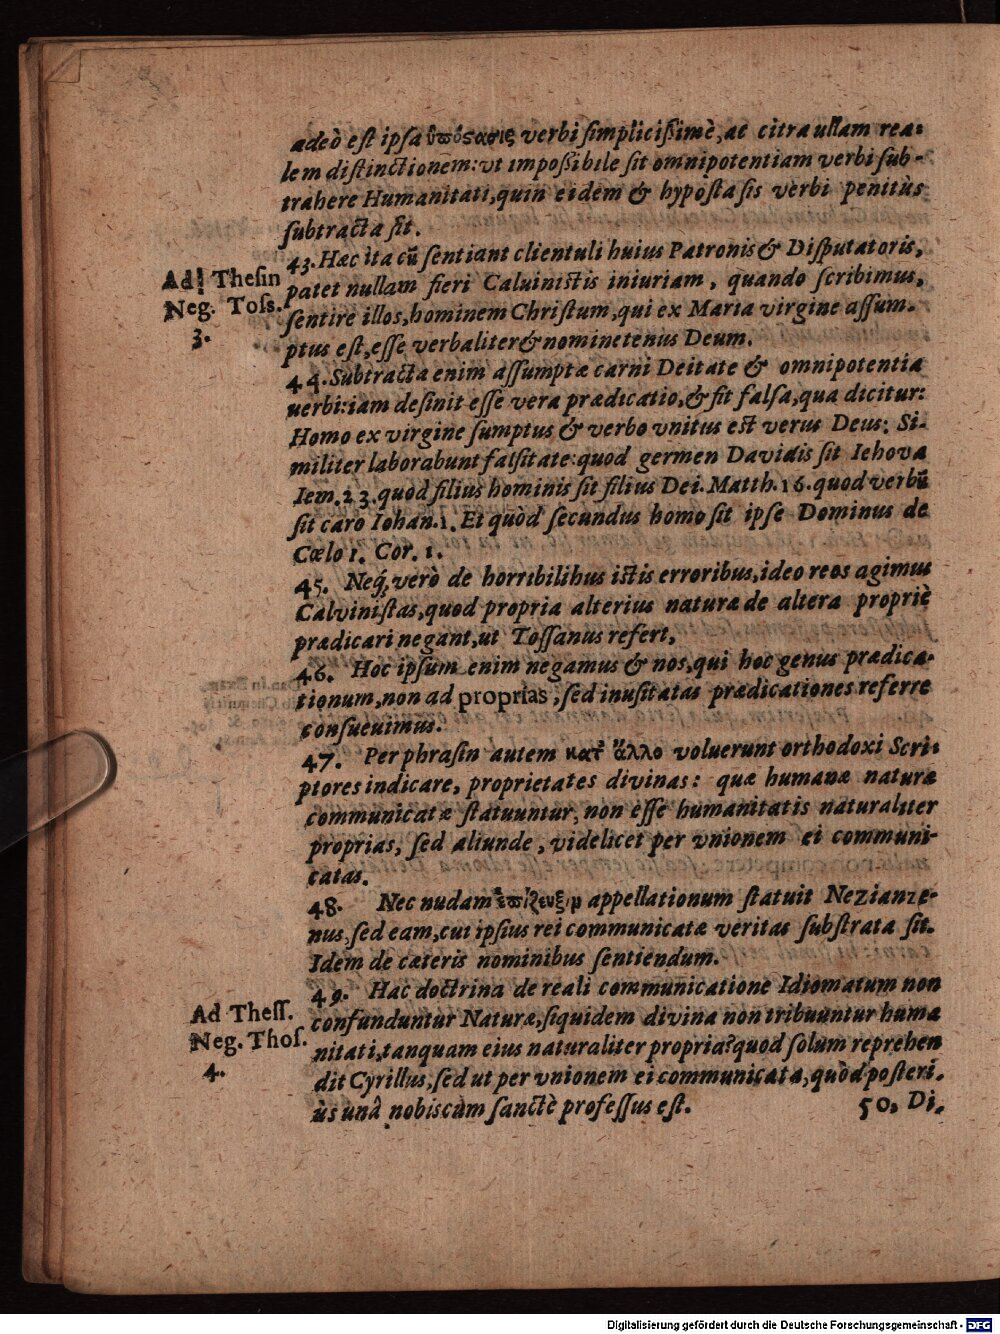 adeò eſt ipſa ὑπόςασις verbi ſimpliciſſimè, ac citra ullam rea-
lem diſtinctionem: ut impoſſibile ſit omnipotentiam verbi ſub-
trahere Humanitati, quin eidem & hypoſtaſis verbi penitùs
ſubtracta ſit.
43. Hæc ita cũ ſentiant clientuli huius Patronis & Diſputatoris,
Ad Theſin
patet nullam fieri Caluiniſtis iniuriam, quando ſcribimus,
Neg. Toſſ.
ſentire illos, hominem Chriſtum, qui ex Maria virgine aſſum-
3.
ptus eſt, eſſe verbaliter & nominetenus Deum.
44. Subtracta enim aſſumptæ carni Deitate & omnipotentia
uerbi: iam deſinit eſſe vera prædicatio, & fit falſa, qua dicitur:
Homo ex virgine ſumptus & verbo vnitus eſt verus Deus: Si-
militer laborabunt falſitate: quod germen Davidis ſit Iehova
Iem. 23. quod filius hominis ſit filius Dei. Matth. 16. quod verbũ
ſit caro Iohan. 1. Et quòd ſecundus homo ſit ipſe Dominus de
Cœlo 1. Cor. 1.
45. Neq; verò de horribilibus iſtis erroribus, ideo reos agimus
Calviniſtas, quod propria alterius naturæ de altera propriè
prædicari negant, ut Toſſanus refert.
46. Hoc ipſum enim negamus & nos, qui hoc genus prædica-
tionum, non ad proprias, ſed inuſitatas prædicationes referre
conſueuimus.
47. Per phraſin autem κατ' ἄλλο voluerunt orthodoxi Scri-
ptores indicare, proprietates divinas: quæ humanæ naturæ
communicatæ ſtatuuntur, non eſſe humanitatis naturaliter
proprias, ſed aliunde, videlicet per vnionem ei communi-
catas.
48. Nec nudam ἐπίζευξιμ appellationum ſtatuit Nezianze-
nus, ſed eam, cui ipſius rei communicatæ veritas ſubſtrata ſit.
Idem de cæteris nominibus ſentiendum.
49. Hac doctrina de reali communicatione Idiomatum non
Ad Theſſ.
confunduntur Naturæ, ſiquidem divina non tribuuntur huma
Neg. Thoſ.
nitati, tanquam eius naturaliter propria? quod ſolum reprehen
4.
dit Cyrillus, ſed ut per vnionem ei communicata, quòd poſteri-
ùs unâ nobiscum ſanctè profeſſus eſt.
50. Di-
Digitalisierung gefördert durch die Deutsche Forschungsgemeinschaft - DFG